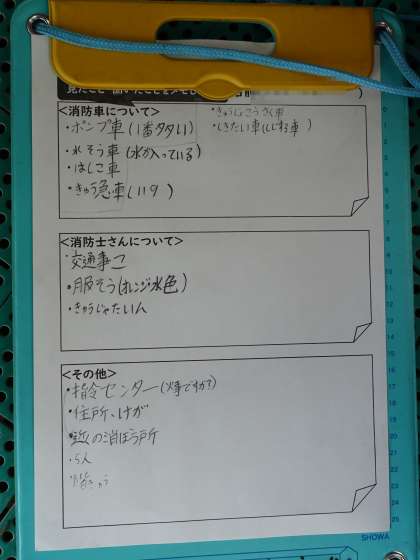 見たこと・聞いたことをメモし
<消防車について>
・ポンプ車(1番タタい)
・きゅうじょこうさく車
・しきたい車(しじする車)
・水そう車(水が入っている)
・はしご車
・きゅう急車(119)
<消防士さんについて>
・交通事こ
・服そう(オレンジ・水色)
・きゅうじょたいん
<その他>
・指令センター(火事ですか?)
・住所、けが
・近くの消ぼう所
・5人
SHOWA